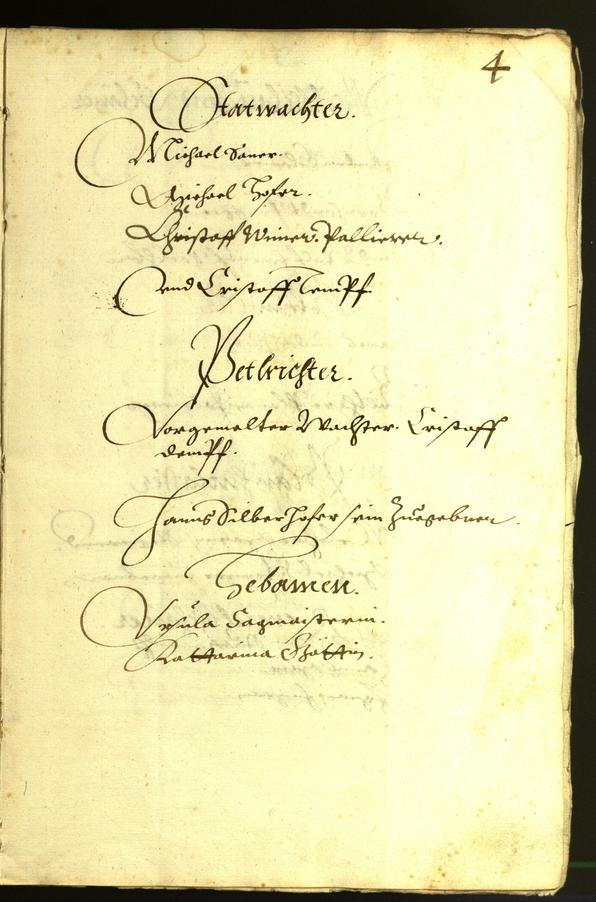 4
Statwachter.
Michael Saner.
Michael Hofer.
Christoff Winer. Pallierer.
vnd Cristoff Tempff.
Petlrichter.
Vorgemelter Wachter. Cristoff
dempff.
Hanns Silberhofer sein Zuegebner.
Hebamen.
Vrsula Sagmaisterin.
Kattarina